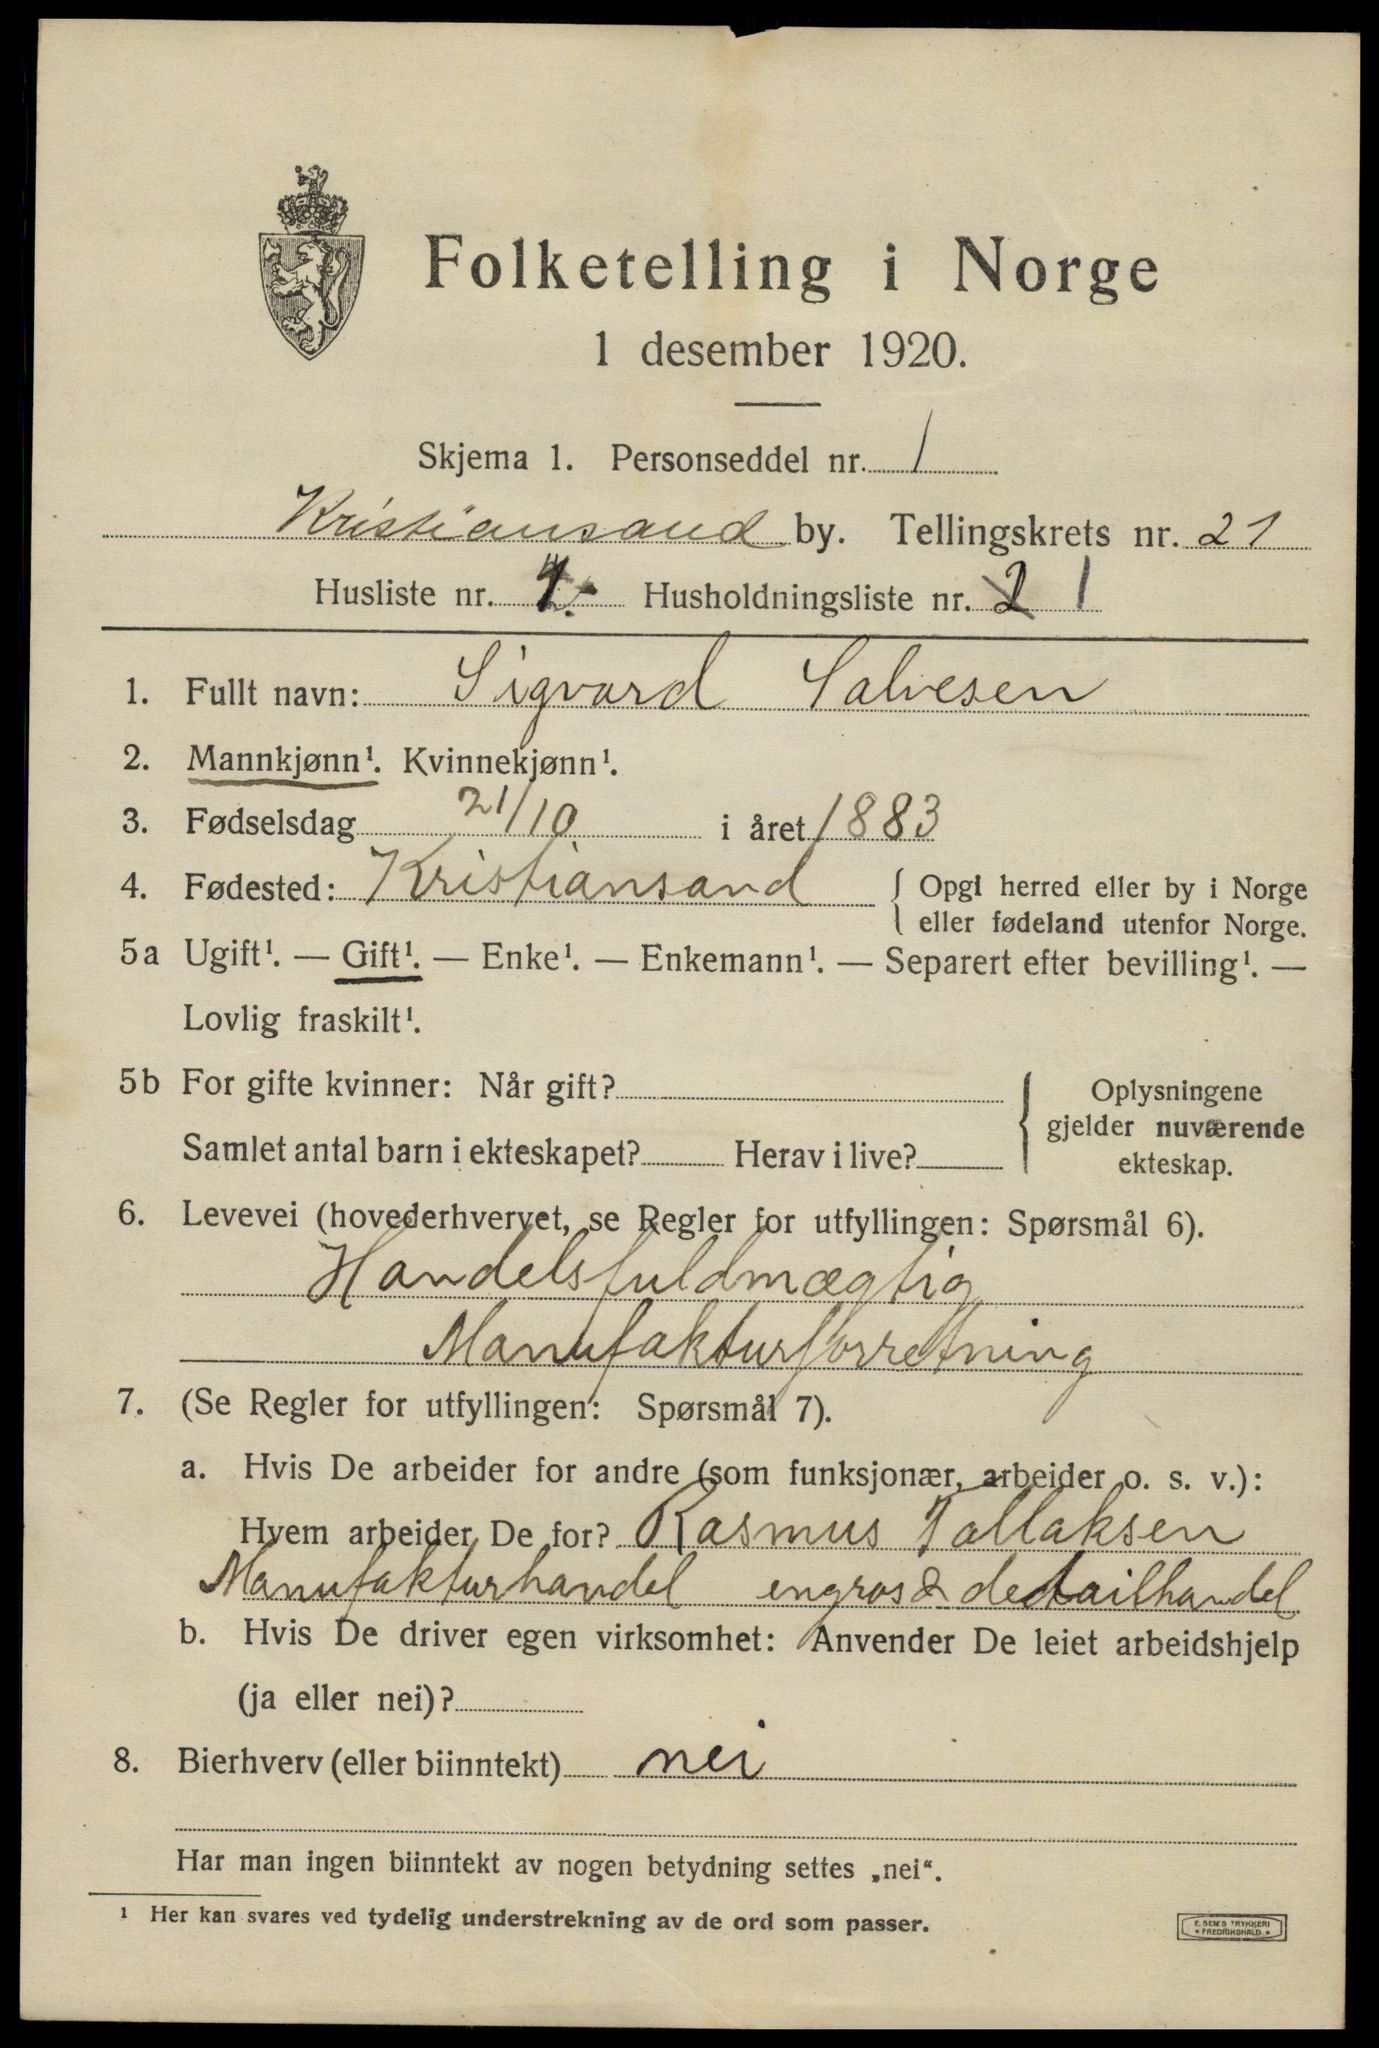 Folketelling i Norge
1 desember 1920.
Skjema 1. Personseddel nr. 1
Kristiansand by. Tellingskrets nr. 21
Husliste nr. Husholdningsliste nr. 2 1
1. Fullt navn: Sigvard Salvesen
2. Mannkjønn¹. Kvinnekjønn¹.
3. Fødselsdag 21/10 i året 1883
4. Fødested: Kristiansand { Opgi herred eller by i Norge
eller fødeland utenfor Norge.
5a Ugift¹. — Gift¹. — Enke¹. — Enkemann¹. — Separert efter bevilling¹. —
Lovlig fraskilt¹.
5b For gifte kvinner: Når gift? { Oplysningene
gjelder nuværende
Samlet antal barn i ekteskapet? Herav i live?
ekteskap.
6. Levevei (hovederhvervet, se Regler for utfyllingen: Spørsmål 6).
Handelsfuldmægtig
Manufakturforretning
7. (Se Regler for utfyllingen: Spørsmål 7).
a. Hvis De arbeider for andre (som funksjonær, arbeider o. s. v.):
Hvem arbeider De for? Rasmus Tallaksen
Manufakturhandel engros & detailhandel
b. Hvis De driver egen virksomhet: Anvender De leiet arbeidshjelp
(ja eller nei)?
8. Bierhverv (eller biinntekt) nei
Har man ingen biinntekt av nogen betydning settes „nei“.
¹ Her kan svares ved tydelig understrekning av de ord som passer.
E. SEM'S TRYKKERI
* FREDRIKSHALD *